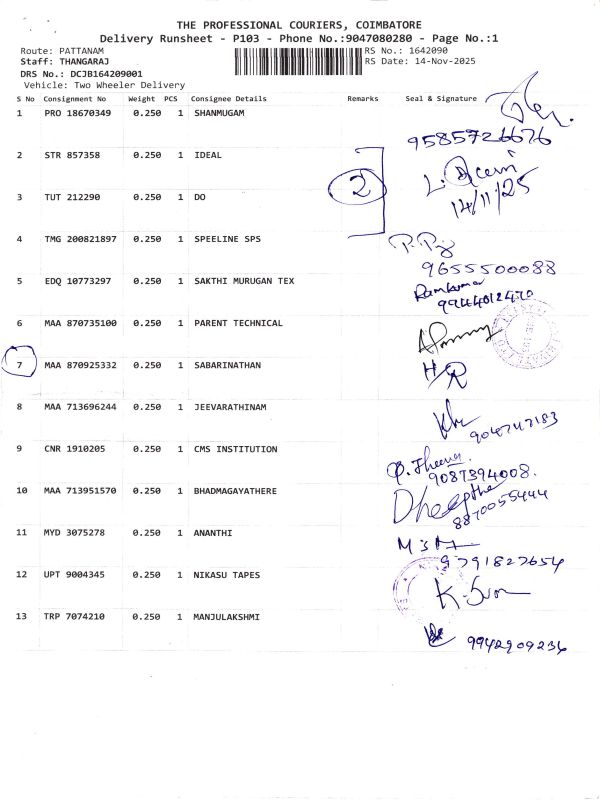 THE PROFESSIONAL COURIERS, COIMBATORE
Delivery Runsheet - P103 - Phone No.:9047080280 - Page No.:1
Route: PATTANAM RS No.: 1642090
Staff: THANGARAJ RS Date: 14-Nov-2025
DRS No.: DCJB164209001
Vehicle: Two Wheeler Delivery
S No Consignment No Weight PCS Consignee Details Remarks Seal & Signature
1 PRO 18670349 0.250 1 SHANMUGAM
9585726676
2 STR 857358 0.250 1 IDEAL
2
14/11/25
3 TUT 212290 0.250 1 DO
4 TMG 200821897 0.250 1 SPEELINE SPS
9655500088
5 EDQ 10773297 0.250 1 SAKTHI MURUGAN TEX
Ramkumar
9944012470
6 MAA 870735100 0.250 1 PARENT TECHNICAL
7 MAA 870925332 0.250 1 SABARINATHAN
H/R
8 MAA 713696244 0.250 1 JEEVARATHINAM
9047747183
9 CNR 1910205 0.250 1 CMS INSTITUTION
9087394008.
10 MAA 713951570 0.250 1 BHADMAGAYATHERE
Dheepthe
8870055444
11 MYD 3075278 0.250 1 ANANTHI
9791827654
12 UPT 9004345 0.250 1 NIKASU TAPES
13 TRP 7074210 0.250 1 MANJULAKSHMI
9942909236